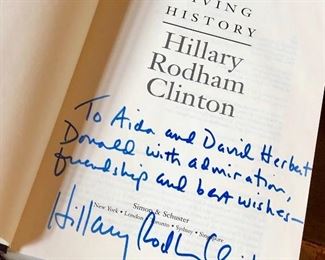 LIVING
HISTORY
Hillary
Rodham
Clinton
To Aida and David Herbert
Donald with admiration,
friendship and best wishes—
Simon & Schuster
New York • London • Toronto • Sydney • Singapore
Hillary Rodham Clinton